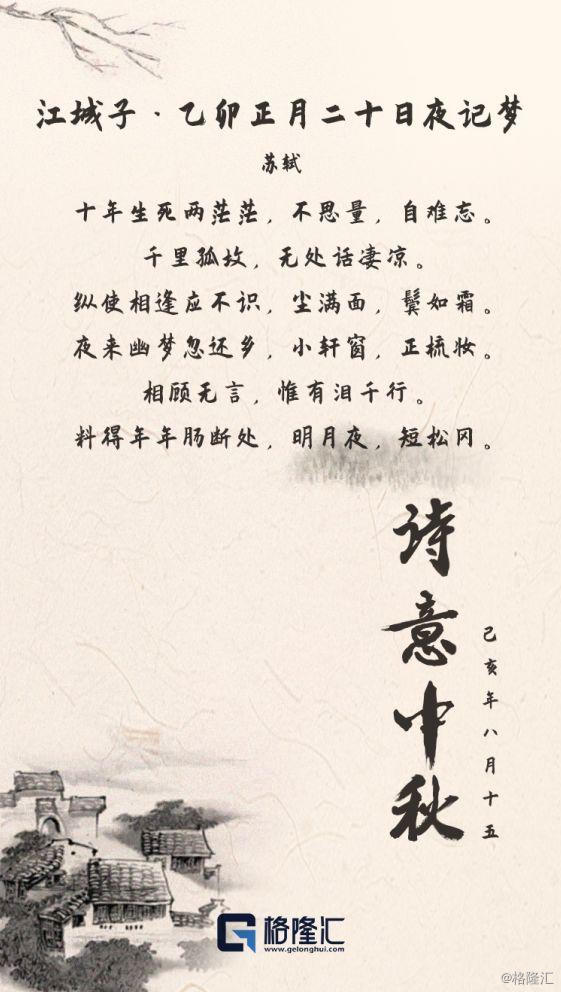 江城子·乙卯正月二十日夜记梦
苏轼
十年生死两茫茫，不思量，自难忘。
千里孤坟，无处话凄凉。
纵使相逢应不识，尘满面，鬓如霜。
夜来幽梦忽还乡，小轩窗，正梳妆。
相顾无言，惟有泪千行。
料得年年肠断处，明月夜，短松冈。
诗意中秋
己亥年八月十五
格隆汇
www.gelonghui.com
@格隆汇